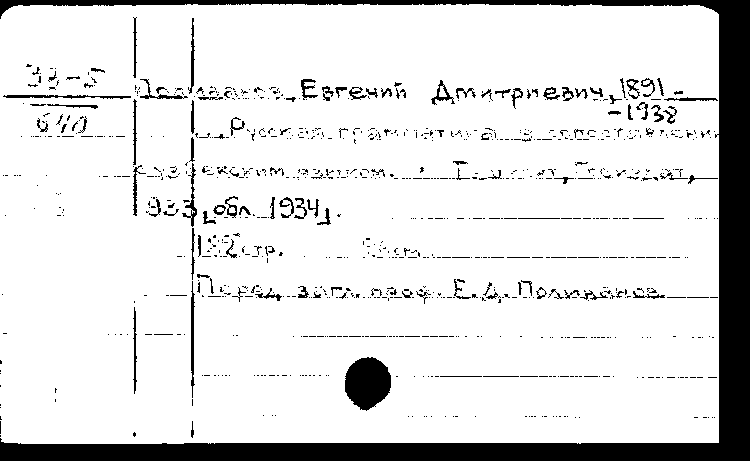 33-5
640
Поливанов, Евгений Дмитриевич, 1891-
-1938
Русская грамматика в сопоставлении
с узбекским языком. Ташкент, Госиздат,
933 [обл. 1934].
182 стр.
Перед загл. проф. Е. Д. Поливанов